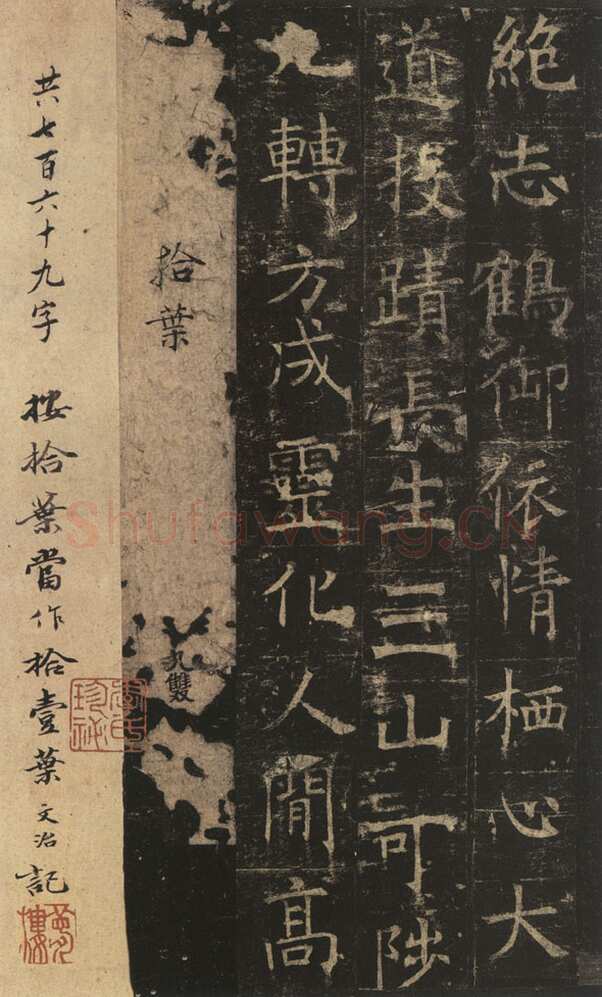 絶志鶴御依情栖心大
道投蹟長生三山可陟
九轉方成靈化人閒高
拾葉
九雙
共七百六十九字 按拾葉當作拾壹葉文治記
珍祕
夢樓
Shufawang.CN